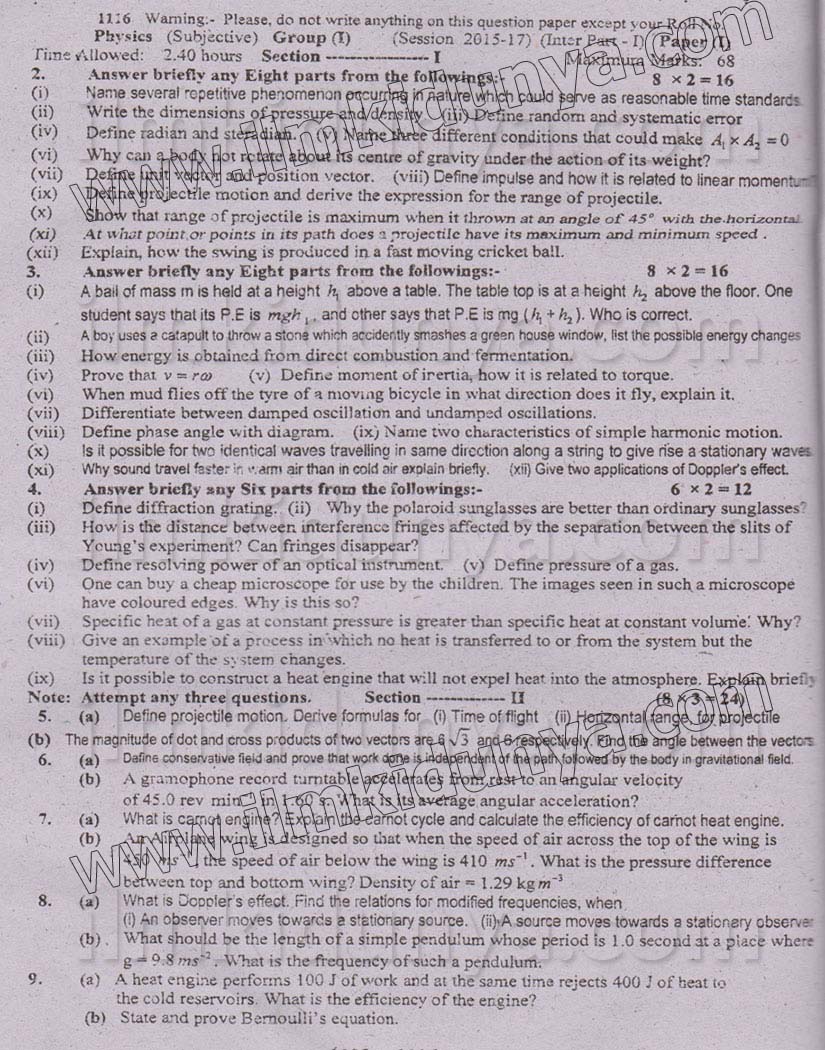 1116 Warning:- Please, do not write anything on this question paper except your Roll No.
Physics (Subjective) Group (I) (Session 2015-17) (Inter Part - I) (Paper (I)
Time Allowed: 2.40 hours Section ----------------- I Maximum Marks: 68
2. Answer briefly any Eight parts from the followings:- 8 × 2 = 16
(i) Name several repetitive phenomenon occurring in nature which could serve as reasonable time standards
(ii) Write the dimensions of pressure and density (iii) Define random and systematic error
(iv) Define radian and steradian. (v) Name three different conditions that could make A₁ × A₂ = 0
(vi) Why can a body not rotate about its centre of gravity under the action of its weight?
(vii) Define unit vector and position vector. (viii) Define impulse and how it is related to linear momentum?
(ix) Define projectile motion and derive the expression for the range of projectile.
(x) Show that range of projectile is maximum when it thrown at an angle of 45° with the horizontal
(xi) At what point or points in its path does a projectile have its maximum and minimum speed .
(xii) Explain, how the swing is produced in a fast moving cricket ball.
3. Answer briefly any Eight parts from the followings:- 8 × 2 = 16
(i) A ball of mass m is held at a height h₁ above a table. The table top is at a height h₂ above the floor. One
student says that its P.E is mgh₁ , and other says that P.E is mg (h₁ + h₂ ). Who is correct.
(ii) A boy uses a catapult to throw a stone which accidently smashes a green house window, list the possible energy changes
(iii) How energy is obtained from direct combustion and fermentation.
(iv) Prove that v = rω (v) Define moment of inertia, how it is related to torque.
(vi) When mud flies off the tyre of a moving bicycle in what direction does it fly, explain it.
(vii) Differentiate between damped oscillation and undamped oscillations.
(viii) Define phase angle with diagram. (ix) Name two characteristics of simple harmonic motion.
(x) Is it possible for two identical waves travelling in same direction along a string to give rise a stationary waves
(xi) Why sound travel faster in warm air than in cold air explain briefly. (xii) Give two applications of Doppler's effect.
4. Answer briefly any Six parts from the followings:- 6 × 2 = 12
(i) Define diffraction grating. (ii) Why the polaroid sunglasses are better than ordinary sunglasses?
(iii) How is the distance between interference fringes affected by the separation between the slits of
Young's experiment? Can fringes disappear?
(iv) Define resolving power of an optical instrument. (v) Define pressure of a gas.
(vi) One can buy a cheap microscope for use by the children. The images seen in such a microscope
have coloured edges. Why is this so?
(vii) Specific heat of a gas at constant pressure is greater than specific heat at constant volume. Why?
(viii) Give an example of a process in which no heat is transferred to or from the system but the
temperature of the system changes.
(ix) Is it possible to construct a heat engine that will not expel heat into the atmosphere. Explain briefly
Note: Attempt any three questions. Section ------------- II (8 × 3 = 24)
5. (a) Define projectile motion. Derive formulas for (i) Time of flight (ii) Horizontal range, for projectile
(b) The magnitude of dot and cross products of two vectors are 6√3 and 6 respectively. Find the angle between the vectors
6. (a) Define conservative field and prove that work done is independent of the path followed by the body in gravitational field.
(b) A gramophone record turntable accelerates from rest to an angular velocity
of 45.0 rev min⁻¹ in 1.60 s. What is its average angular acceleration?
7. (a) What is carnot engine? Explain the carnot cycle and calculate the efficiency of carnot heat engine.
(b) An Airplane wing is designed so that when the speed of air across the top of the wing is
450 ms⁻¹, the speed of air below the wing is 410 ms⁻¹ . What is the pressure difference
between top and bottom wing? Density of air = 1.29 kg m⁻³
8. (a) What is Doppler's effect. Find the relations for modified frequencies, when
(i) An observer moves towards a stationary source. (ii) A source moves towards a stationary observer
(b) . What should be the length of a simple pendulum whose period is 1.0 second at a place where
g = 9.8 ms⁻² . What is the frequency of such a pendulum.
9. (a) A heat engine performs 100 J of work and at the same time rejects 400 J of heat to
the cold reservoirs. What is the efficiency of the engine?
(b) State and prove Bernoulli's equation.
www.ilmkidunya.com
www.ilmkidunya.com
ilmkidunya.com
ilmkidunya.com
ilmkidunya.com
ilmkidunya.com